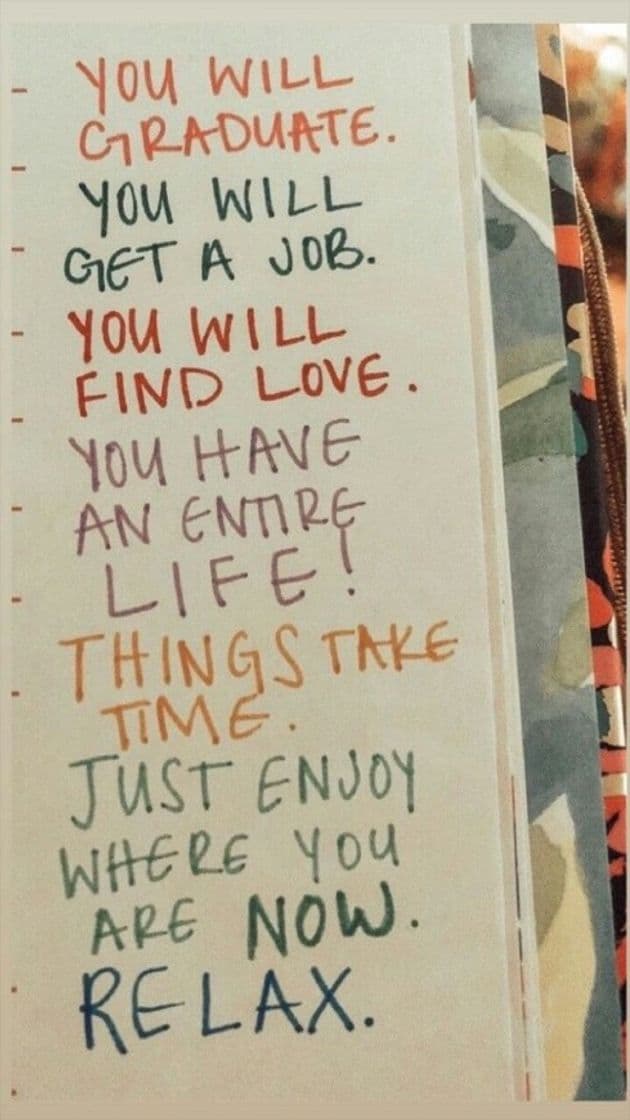 YOU WILL
GRADUATE.
YOU WILL
GET A JOB.
YOU WILL
FIND LOVE.
YOU HAVE
AN ENTIRE
LIFE!
THINGS TAKE
TIME.
JUST ENJOY
WHERE YOU
ARE NOW.
RELAX.